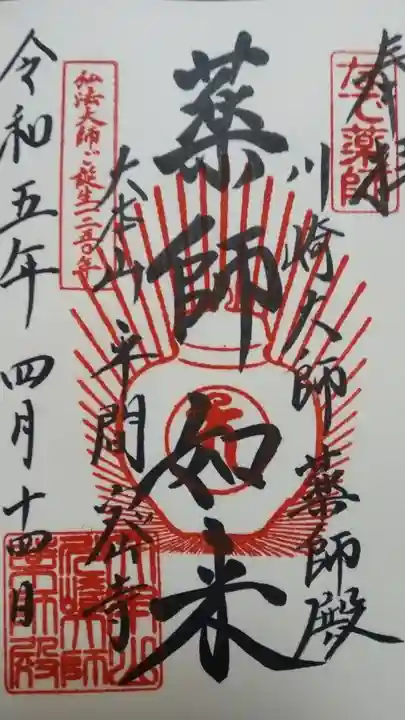 奉拝
なで薬師
川崎大師薬師殿
薬師如来
大本山
平間寺
弘法大師ご誕生一二五〇年
令和五年
四月十四日